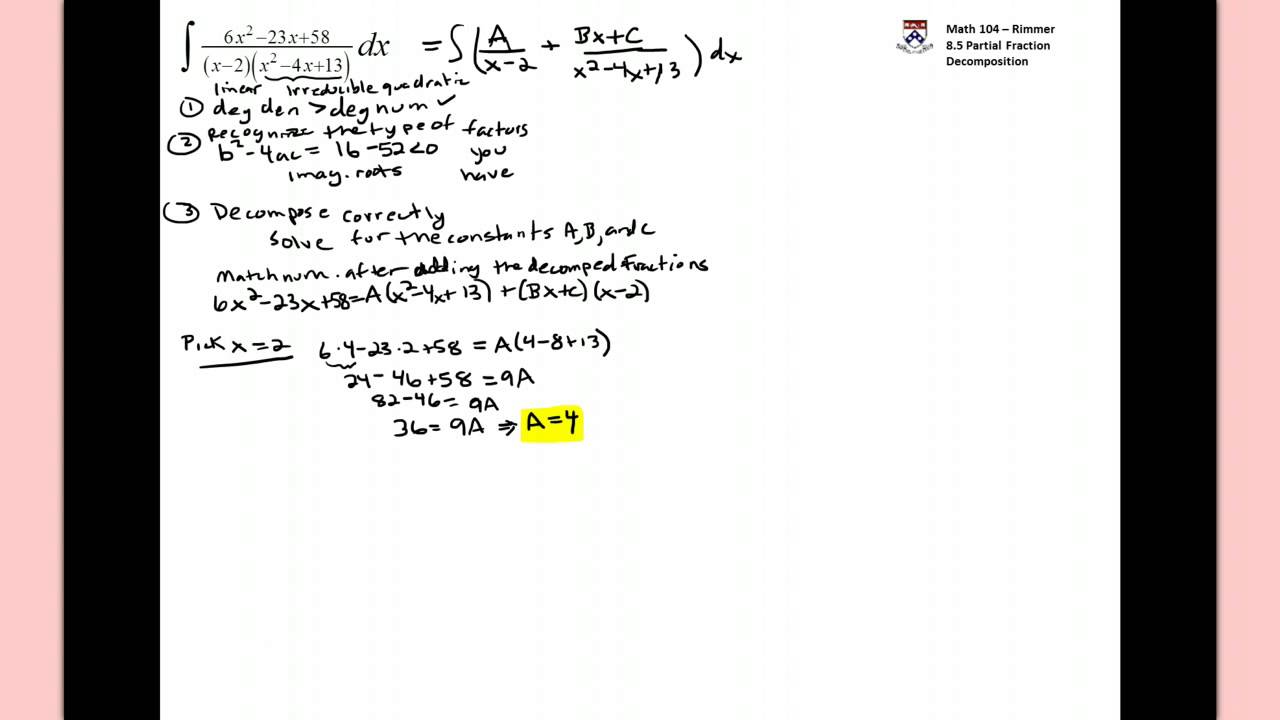 ∫ (6x² − 23x + 58)/((x−2)(x² − 4x + 13)) dx = ∫ (A/(x−2) + (Bx+C)/(x²−4x+13)) dx
linear irreducible quadratic
① deg den > deg num ✓
② Recognize the type of factors you have
b² − 4ac = 16 − 52 < 0
imag. roots
③ Decompose correctly
solve for the constants A, B, and C
Match num. after adding the decomped fractions
6x² − 23x + 58 = A(x² − 4x + 13) + (Bx + C)(x − 2)
Pick x = 2 6·4 − 23·2 + 58 = A(4 − 8 + 13)
24 − 46 + 58 = 9A
82 − 46 = 9A
36 = 9A ⇒ A = 4
Math 104 – Rimmer
8.5 Partial Fraction
Decomposition